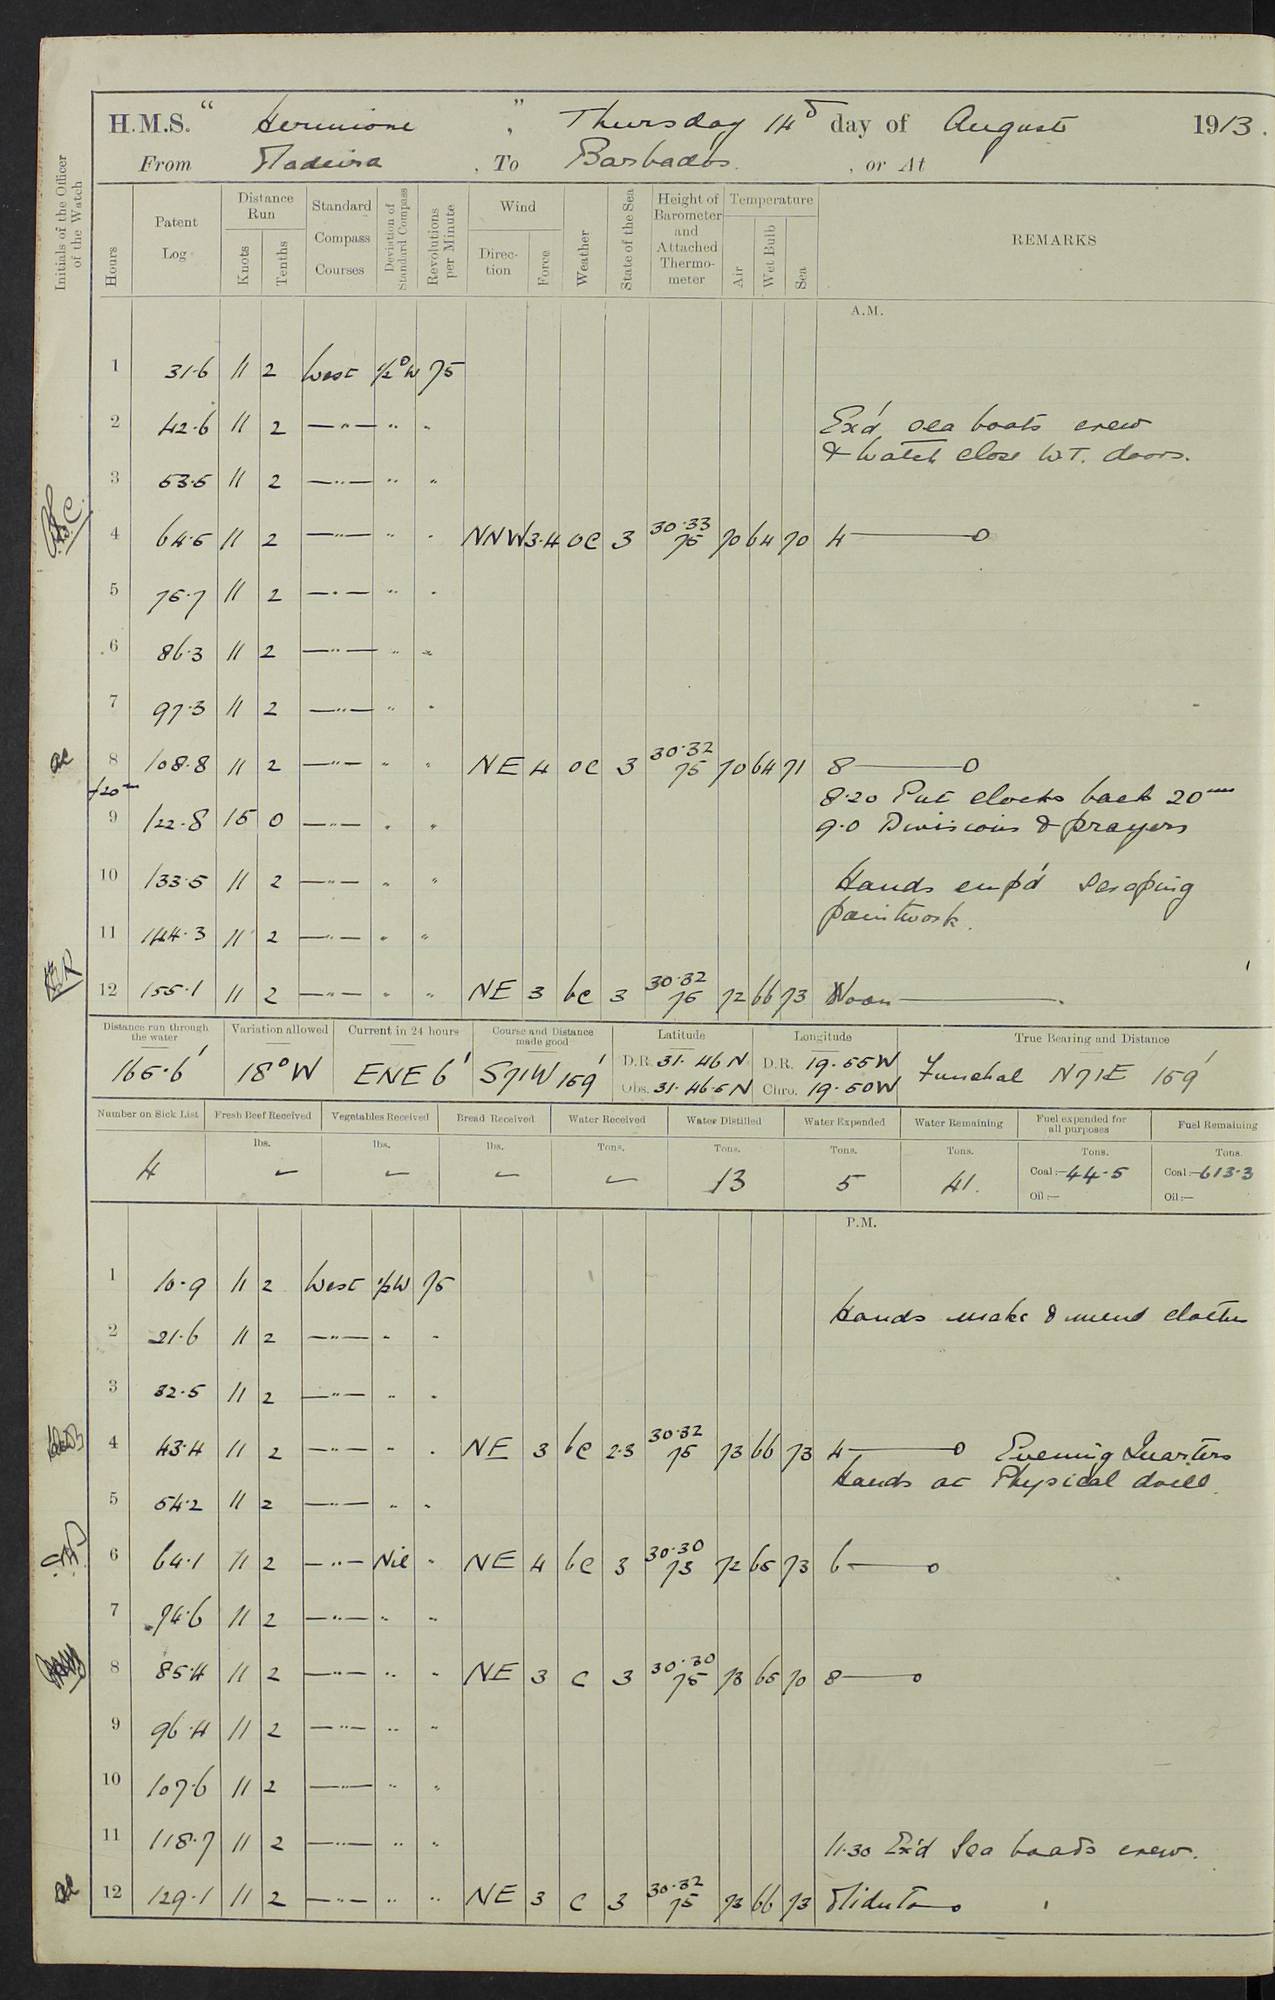 H.M.S. "Hermione", Thursday 14th day of August 1913.
From Madeira, To Barbados, or At
Initials of the Officer of the Watch
Hours
Patent Log
Distance Run
Knots
Tenths
Standard Compass Courses
Deviation of Standard Compass
Revolutions per Minute
Wind
Direction
Force
Weather
State of the Sea
Height of Barometer and Attached Thermometer
Temperature
Air
Wet Bulb
Sea
REMARKS
A.M.
1 31.6 11 2 West ½°W 75
2 42.6 11 2 —"— " " Ex'd sea boats crew
& watch close W.T. doors.
3 53.5 11 2 —"— " "
4 64.5 11 2 —"— " " NNW 3.4 oc 3 30.33 75 70 64 70 4———o
5 75.7 11 2 —"— " "
6 86.3 11 2 —"— " "
7 97.3 11 2 —"— " "
8 108.8 11 2 —"— " " NE 4 oc 3 30.32 75 70 64 71 8———o
+20m 8.20 Put clocks back 20m
9 122.8 15 0 —"— " " 9.0 Divisions & prayers
10 133.5 11 2 —"— " " Hands emp'd scraping
paintwork.
11 144.3 11 2 —"— " "
12 155.1 11 2 —"— " " NE 3 bc 3 30.32 75 72 66 73 Noon———
Distance run through the water
165.6'
Variation allowed
18°W
Current in 24 hours
ENE 6'
Course and Distance made good
S71W 159'
Latitude
D.R. 31.46N
Obs. 31.46.5N
Longitude
D.R. 19.55W
Chro. 19.50W
True Bearing and Distance
Funchal N71E 159'
Number on Sick List
4
Fresh Beef Received
lbs.
✓
Vegetables Received
lbs.
✓
Bread Received
lbs.
✓
Water Received
Tons.
✓
Water Distilled
Tons.
13
Water Expended
Tons.
5
Water Remaining
Tons.
41.
Fuel expended for all purposes
Tons.
Coal:—44.5
Oil:—
Fuel Remaining
Tons.
Coal:—613.3
Oil:—
P.M.
1 10.9 11 2 West ½W 75
Hands make & mend clothes
2 21.6 11 2 —"— " "
3 32.5 11 2 —"— " "
4 43.4 11 2 —"— " " NE 3 bc 2.3 30.32 75 73 66 73 4———o Evening Quarters
Hands at Physical drill.
5 54.2 11 2 —"— " "
6 64.1 11 2 —"— Nil " NE 4 bc 3 30.30 73 72 65 73 6———o
7 74.6 11 2 —"— " "
8 85.4 11 2 —"— " " NE 3 c 3 30.30 75 73 65 70 8———o
9 96.4 11 2 —"— " "
10 107.6 11 2 —"— " "
11 118.7 11 2 —"— " " 11.30 Ex'd Sea boats crew.
12 129.1 11 2 —"— " " NE 3 c 3 30.32 75 73 66 73 Midnt———o